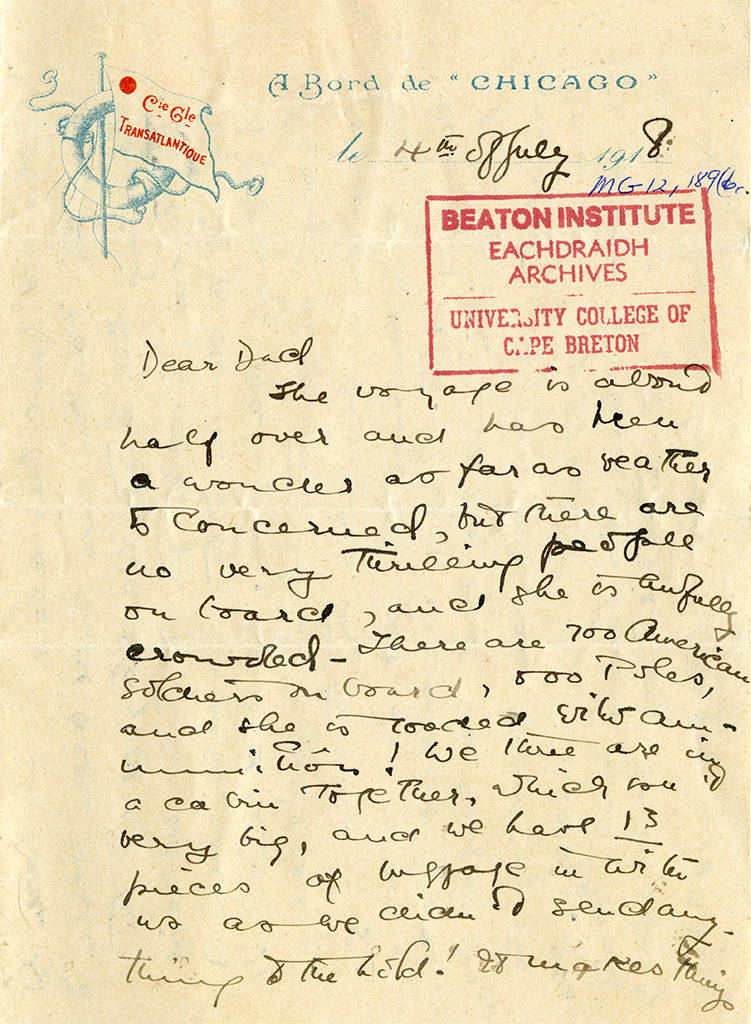 A Bord de "CHICAGO"
Cie Gle
TRANSATLANTIQUE
le 4th of July 1918.
MG 12, 189
BEATON INSTITUTE
EACHDRAIDH
ARCHIVES
UNIVERSITY COLLEGE OF
CAPE BRETON
Dear Dad
The voyage is about
half over and has been
a wonder as far as weather
is concerned, but there are
no very thrilling people
on board, and she is awfully
crowded - There are 700 American
soldiers on board, 500 Poles,
and she is loaded with am-
munition! We three are in
a cabin together, which isn't
very big, and we have 13
pieces of luggage in with
us as we didn't send any-
thing to the hold! It makes things